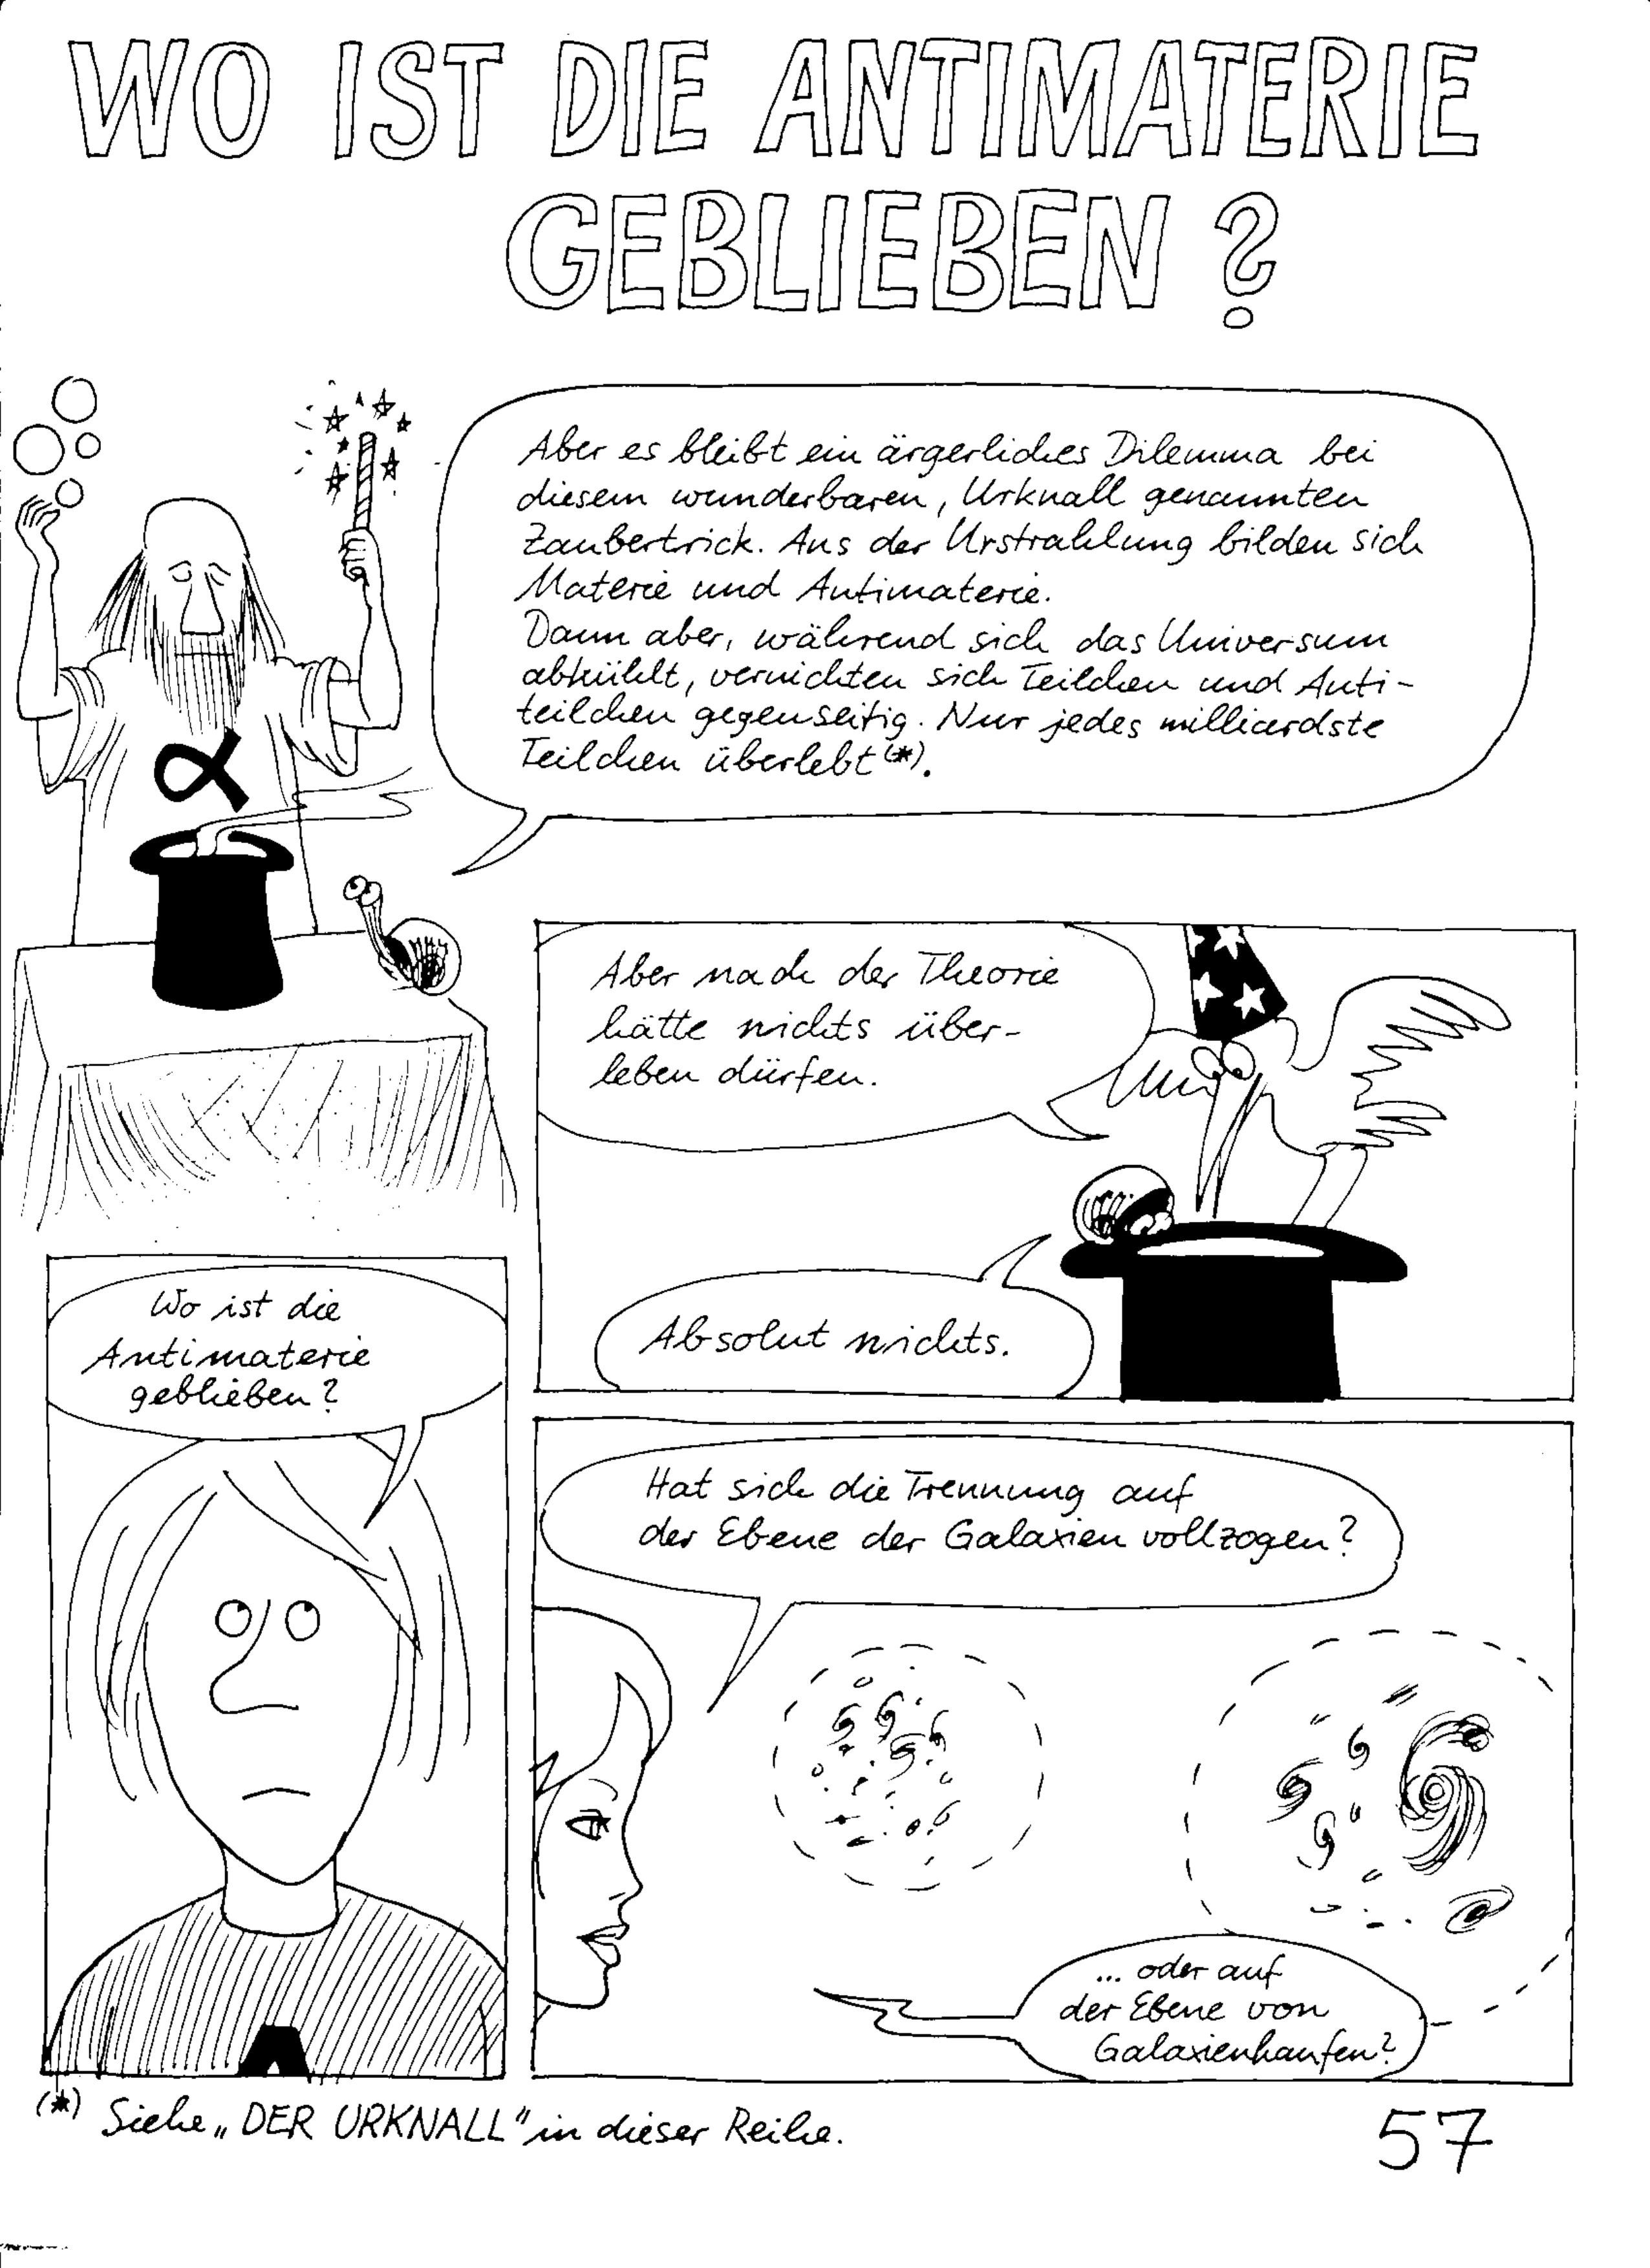 WO IST DIE ANTIMATERIE
GEBLIEBEN ?
Aber es bleibt ein ärgerliches Dilemma bei
diesem wunderbaren, Urknall genannten
Zaubertrick. Aus der Urstrahlung bilden sich
Materie und Antimaterie.
Dann aber, während sich das Universum
abkühlt, vernichten sich Teilchen und Anti-
teilchen gegenseitig. Nur jedes milliardste
Teilchen überlebt (*).
α
Aber nach der Theorie
hätte nichts über-
leben dürfen.
Absolut nichts.
Wo ist die
Antimaterie
geblieben?
Hat sich die Trennung auf
der Ebene der Galaxien vollzogen?
... oder auf
der Ebene von
Galaxienhaufen?
A
(*) Siehe „DER URKNALL" in dieser Reihe.
57